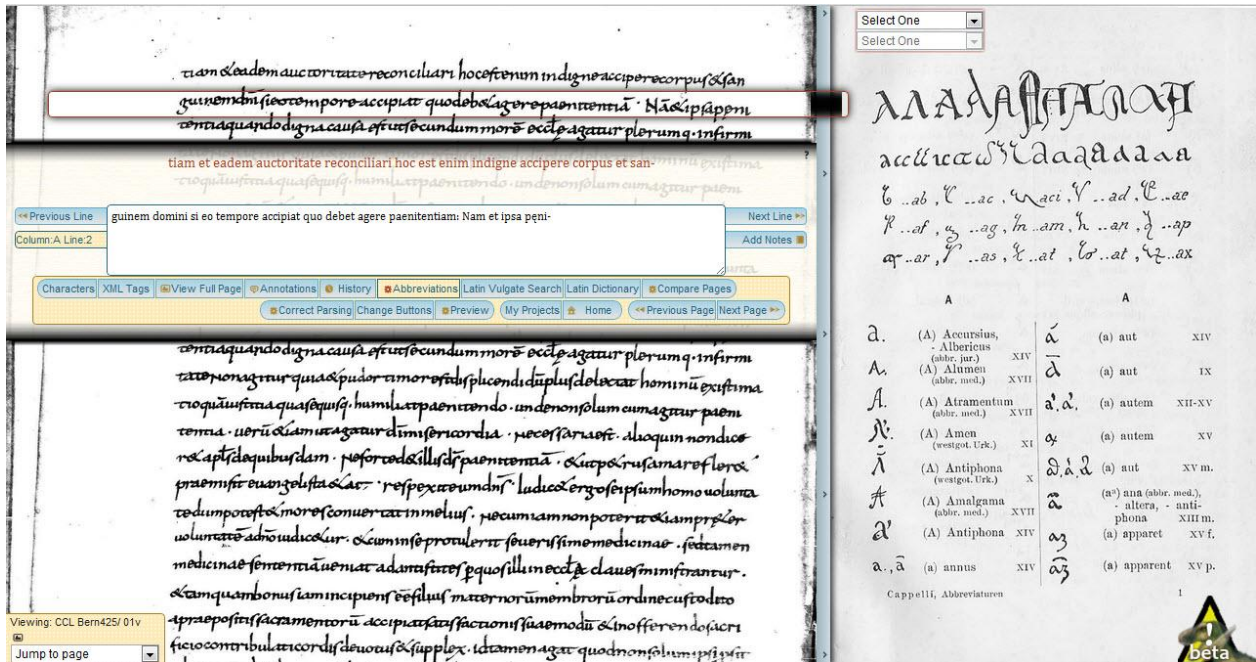 tiam & eadem auctoritate reconciliari hoc est enim indigne accipere corpus & san
guinem dñi si eo tempore accipiat quo deb& agere paenitentiā · Nā & ipsa peni
tentia quando digna causa est ut secundum morē eccłę agatur plerumq· infirmi
tiam et eadem auctoritate reconciliari hoc est enim indigne accipere corpus et san-
?
<< Previous Line
guinem domini si eo tempore accipiat quo debet agere paenitentiam: Nam et ipsa pęni-
Next Line >>
Column:A Line:2
Add Notes
Characters XML Tags View Full Page Annotations History Abbreviations Latin Vulgate Search Latin Dictionary Compare Pages
Correct Parsing Change Buttons Preview My Projects Home << Previous Page Next Page >>
tentia quando digna causa est ut secundum morē eccłę agatur plerumq· infirmi
tate non agitur quia & pudor timor est displicendi dū plus delectat hominū existima
tio quā iustitia qua se quisq· humiliat paenitendo · unde non solum cum agitur paeni
tentia · uerū &iam ut agatur dī misericordia · necessaria est · alioquin non dice
r& apłs de quibusdam · ne forte d& illis dš paenitentiā · & ut p&rus amare fler&
praemisit euangelista & ait · respexit eum dn̄s · iudic& ergo se ipsum homo uolunta
te dum potest & mores conuertat in melius · ne cum iam non poterit &iam pręter
uoluntatē a dn̄o iudic&ur · & cum in se protulerit seuerissime medicinae · sed tamen
medicinae sententiā ueniat ad antistites p quos illi in eccłą claues ministrantur ·
& tamquam bonus iam incipiens eē filius maternorū membrorū ordine custodito
a praepositis sacramentorū accipiat satisfactionis suae modū & in offerendo sacri
ficio contribulati cordis deuotus & supplex · id tamen agat quod non solum ipsi psit
Viewing: CCL Bern425/ 01v
Jump to page
Select One
Select One
..ab, ..ac, ..aci, ..ad, ..ae
..af, ..ag, ..am, ..an, ..ap
..ar, ..as, ..at, ..at, ..ax
A
a. (A) Accursius,
- Albericus
(abbr. jur.) XIV
A. (A) Alumen
(abbr. med.) XVII
A. (A) Atramentum
(abbr. med.) XVII
(A) Amen
(westgot. Urk.) XI
(A) Antiphona
(westgot. Urk.) X
(A) Amalgama
(abbr. med.) XVII
(A) Antiphona XIV
a., ā (a) annus XIV
A
(a) aut XIV
(a) aut IX
(a) autem XII-XV
(a) autem XV
(a) aut XV m.
(aª) ana (abbr. med.),
- altera, - anti-
phona XIII m.
(a) apparet XV f.
(a) apparent XV p.
Cappelli, Abbreviaturen 1
!
beta